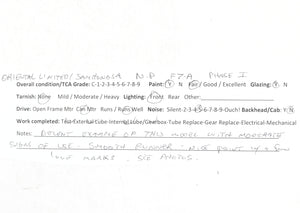 ORIENTAL LIMITED/ N.P F7-A PHASE I
Overall condition/TCA Grade: C-1-2-3-4-5-6-7-8-9 Paint: Y N Fair / Good / Excellent Glazing: Y N
Tarnish: None / Mild / Moderate / Heavy Lighting: Front Rear Other:
Drive: Open Frame Mtr Can Mtr Runs / Runs Well Noise: Silent 1-2-3-4-5-6-7-8-9-Ouch! Backhead/Cab: Y N
Work completed: Test-External Lube-Internal Lube/Gearbox-Tube Replace-Gear Replace-Electrical-Mechanical
Notes: DECENT EXAMPLE OF THIS MODEL WITH MODERATE
SIGNS OF USE. SMOOTH RUNNER. PAINT
MARKS. SEE PHOTOS.